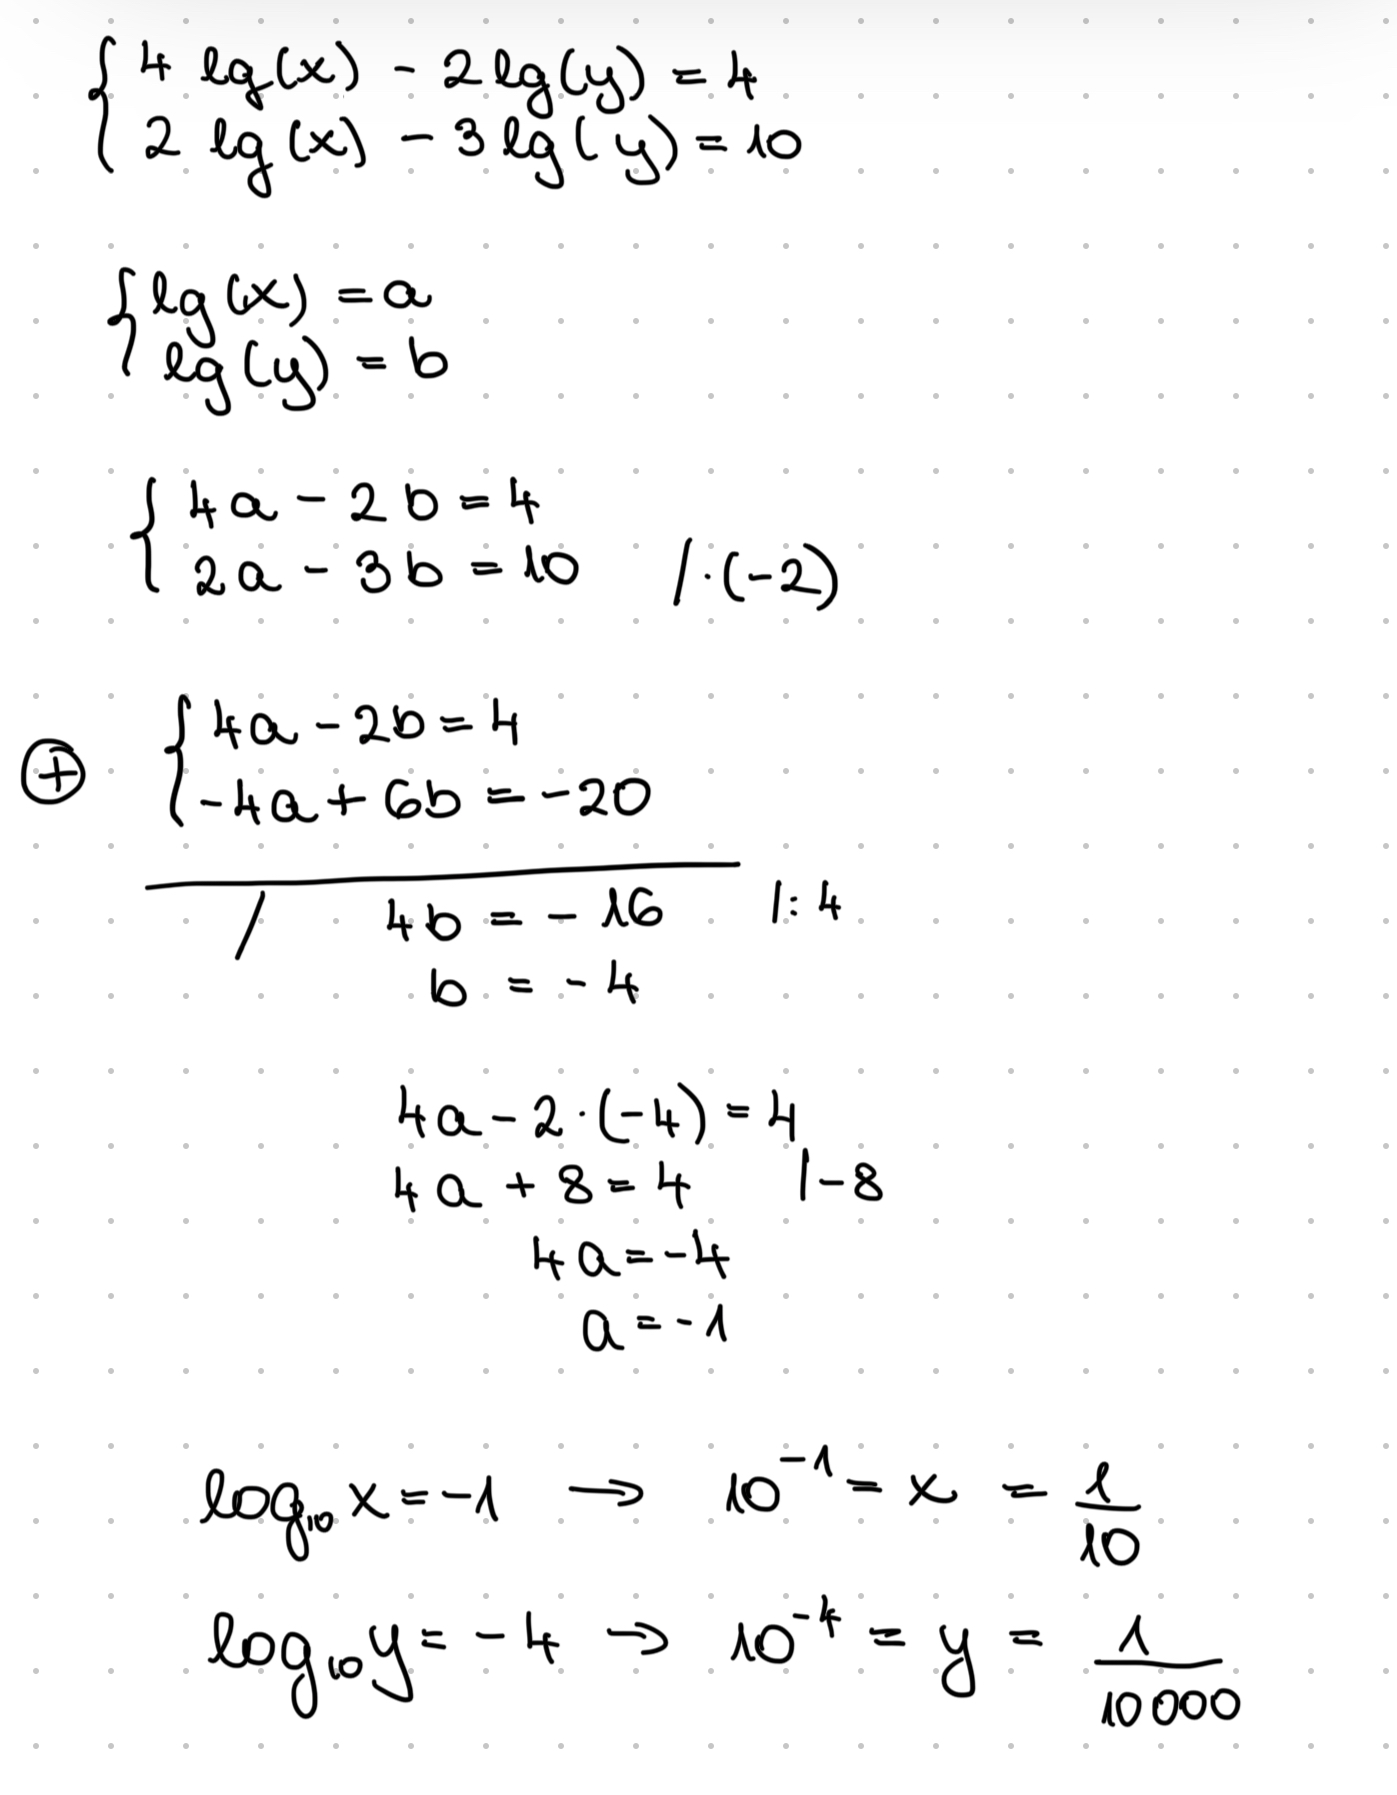 { 4 lg(x) - 2lg(y) = 4
2 lg(x) - 3lg(y) = 10
{ lg(x) = a
lg(y) = b
{ 4a - 2b = 4
2a - 3b = 10 /·(-2)
{ 4a - 2b = 4
⊕
-4a + 6b = -20
/ 4b = -16 /: 4
b = -4
4a - 2·(-4) = 4
4a + 8 = 4 |-8
4a = -4
a = -1
log₁₀ x = -1 → 10⁻¹ = x = 1/10
log₁₀ y = -4 → 10⁻⁴ = y = 1/10000